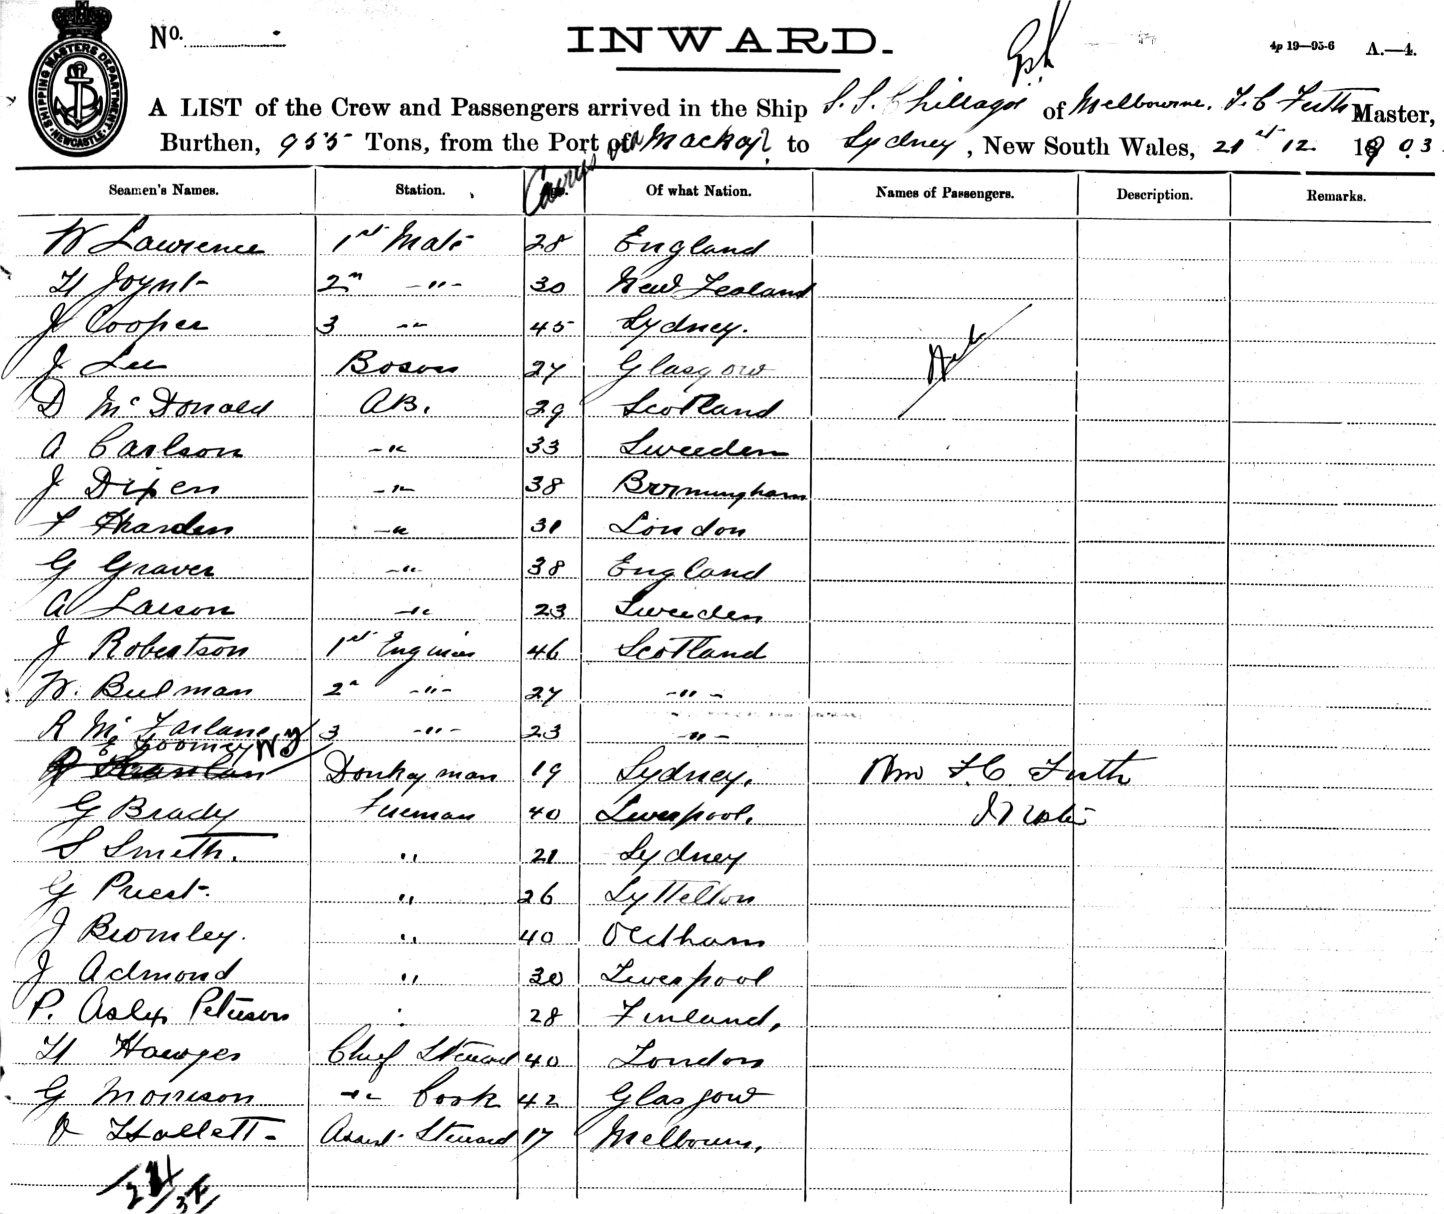 SHIPPING MASTERS DEPARTMENT NEWCASTLE
No. INWARD. 4p 19—95-6 A.—4.
A LIST of the Crew and Passengers arrived in the Ship S. S. Chillagoe of Melbourne, F. C. Firth Master,
Burthen, 955 Tons, from the Port of Cairns via Mackay to Sydney, New South Wales, 21st 12 1903
Seamen's Names. Station. Of what Nation. Names of Passengers. Description. Remarks.
W Lawrence 1st Mate 28 England
H Joynt 2n -"- 30 New Zealand
J Cooper 3 -"- 45 Sydney.
J. Lee Boson 27 Glasgow
D McDonald AB. 29 Scotland
A Carlson -"- 33 Sweeden
J Dixen -"- 38 Birmingham
F Harden -"- 31 London
G Graver -"- 38 England
A Larson -"- 23 Sweeden
J Robertson 1st Engineer 46 Scotland
W. Bulman 2n -"- 27 -"-
R McFarlane 3 -"- 23 -"-
E Toomey
Donkeyman 19 Sydney. F. C. Firth
G Brady Fireman 40 Liverpool.
S Smith. " 21 Sydney
G Priest. " 26 Lyttelton
J Bromley. " 40 Oldham
J Admond " 30 Liverpool
P. Peterson 28 Finland,
H Hawges Chief Steward 40 London
G Morrison -"- Cook 42 Glasgow
Hallett- Assist- Steward 17 Melbourn,